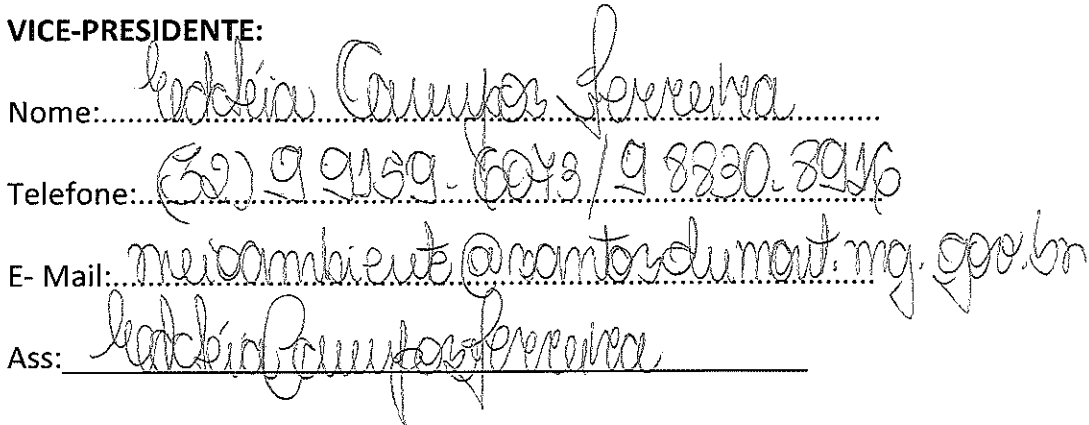 VICE-PRESIDENTE:
Nome: Campos Ferreira
Telefone: (32) 9 9159-6073 / 9 8830-8916
E- Mail: meioambiente@santosdumont.mg.gov.br
Ass: Campos Ferreira